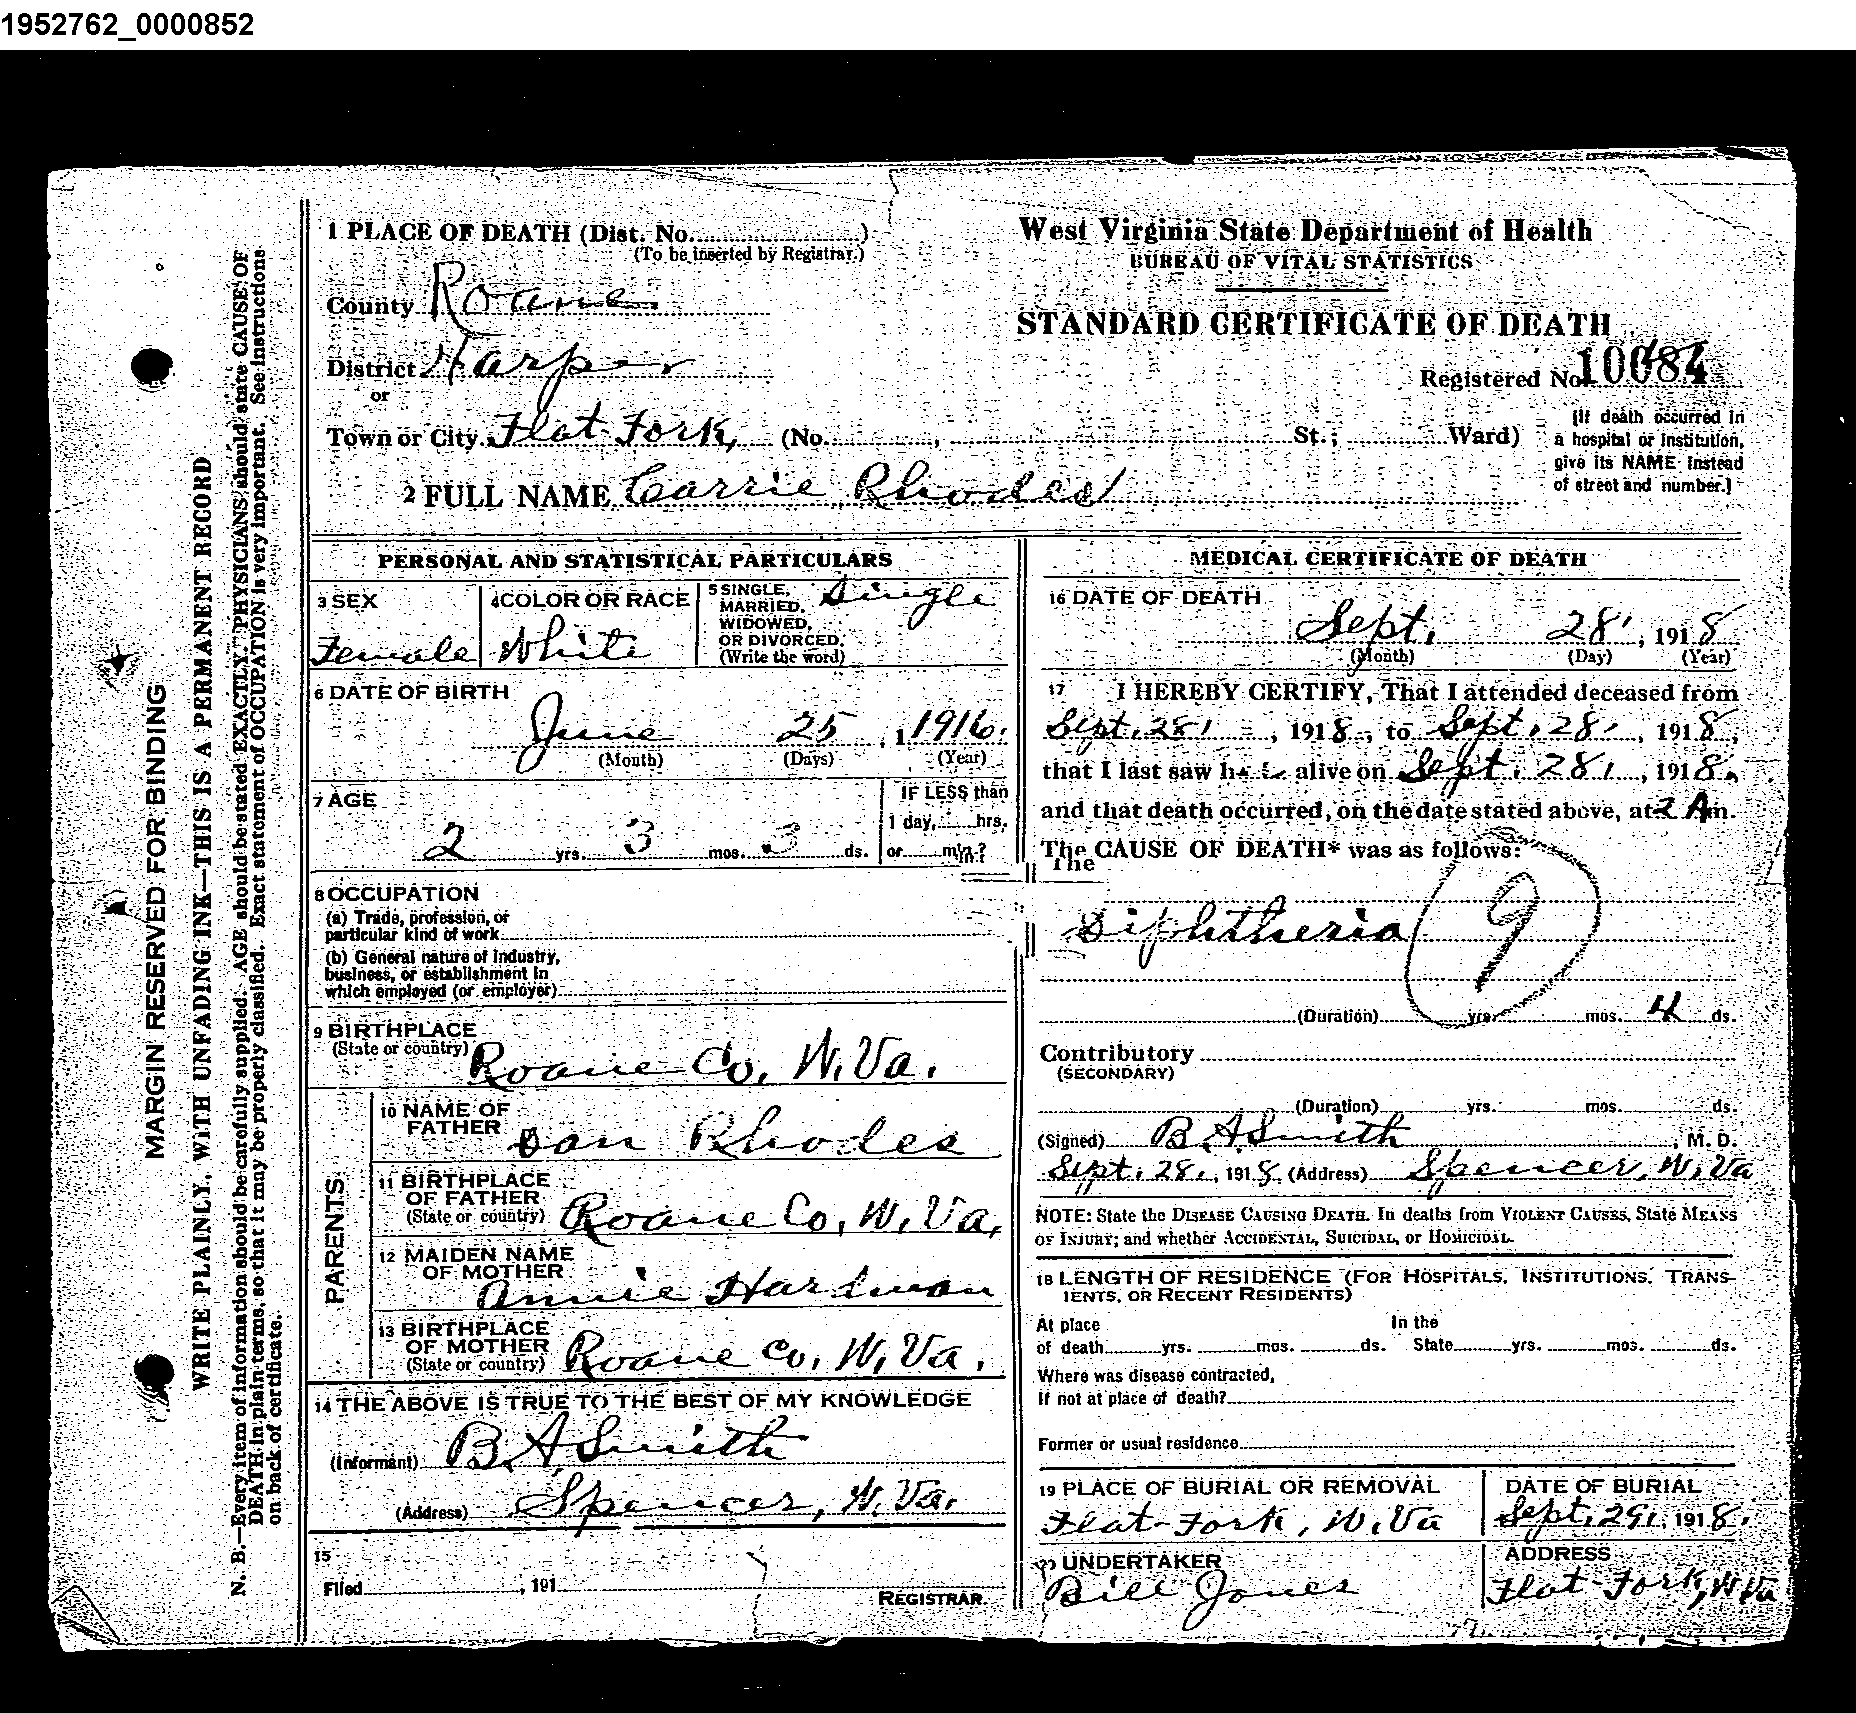 1952762_0000852
1 PLACE OF DEATH (Dist. No.......................)
(To be inserted by Registrar.)
County Roane.
District Harper
or
Town or City Flat Fork, (No. , St.; Ward)
2 FULL NAME Carrie Rhodes
West Virginia State Department of Health
BUREAU OF VITAL STATISTICS
STANDARD CERTIFICATE OF DEATH
Registered No.
[If death occurred in
a hospital or institution,
give its NAME instead
of street and number.]
MARGIN RESERVED FOR BINDING
WRITE PLAINLY, WITH UNFADING INK—THIS IS A PERMANENT RECORD
N. B.—Every item of information should be carefully supplied. AGE should be stated EXACTLY. PHYSICIANS should state CAUSE OF
DEATH in plain terms, so that it may be properly classified. Exact statement of OCCUPATION is very important. See instructions
on back of certificate.
PERSONAL AND STATISTICAL PARTICULARS
3 SEX
Female
4 COLOR OR RACE
White
5 SINGLE,
MARRIED,
WIDOWED,
OR DIVORCED,
(Write the word)
Single
6 DATE OF BIRTH
June 25, 1916.
(Month) (Days) (Year)
7 AGE
2 yrs. 3 mos. 3 ds.
IF LESS than
1 day, hrs.
or min.?
8 OCCUPATION
(a) Trade, profession, or
particular kind of work
(b) General nature of Industry,
business, or establishment in
which employed (or employer)
9 BIRTHPLACE
(State or country) Roane Co, W. Va.
PARENTS
10 NAME OF
FATHER Dan Rhodes
11 BIRTHPLACE
OF FATHER
(State or country) Roane Co, W. Va,
12 MAIDEN NAME
OF MOTHER
Annie Hardman
13 BIRTHPLACE
OF MOTHER
(State or country) Roane Co, W. Va.
14 THE ABOVE IS TRUE TO THE BEST OF MY KNOWLEDGE
(Informant) B. A Smith
(Address) Spencer, W. Va.
15
Filed , 191
REGISTRAR.
MEDICAL CERTIFICATE OF DEATH
16 DATE OF DEATH
Sept. 28, 1918
(Month) (Day) (Year)
17 I HEREBY CERTIFY, That I attended deceased from
Sept. 28, , 1918, to Sept. 28, , 1918,
that I last saw h alive on Sept. 28, , 1918,
and that death occurred, on the date stated above, at 2 Am.
The CAUSE OF DEATH* was as follows:
The
Diphtheria 9
(Duration) yrs. mos. 4 ds.
Contributory
(SECONDARY)
(Duration) yrs. mos. ds.
(Signed) B. A Smith , M. D.
Sept. 28., 1918 (Address) Spencer, W. Va
NOTE: State the DISEASE CAUSING DEATH. In deaths from VIOLENT CAUSES, State MEANS
OF INJURY; and whether ACCIDENTAL, SUICIDAL, or HOMICIDAL.
18 LENGTH OF RESIDENCE (FOR HOSPITALS, INSTITUTIONS, TRANS-
IENTS, OR RECENT RESIDENTS)
At place In the
of death yrs. mos. ds. State yrs. mos. ds.
Where was disease contracted,
If not at place of death?
Former or usual residence
19 PLACE OF BURIAL OR REMOVAL
Flat Fork, W. Va
DATE OF BURIAL
Sept. 29, 1918.
20 UNDERTAKER
Bill Jones
ADDRESS
Flat Fork, W Va